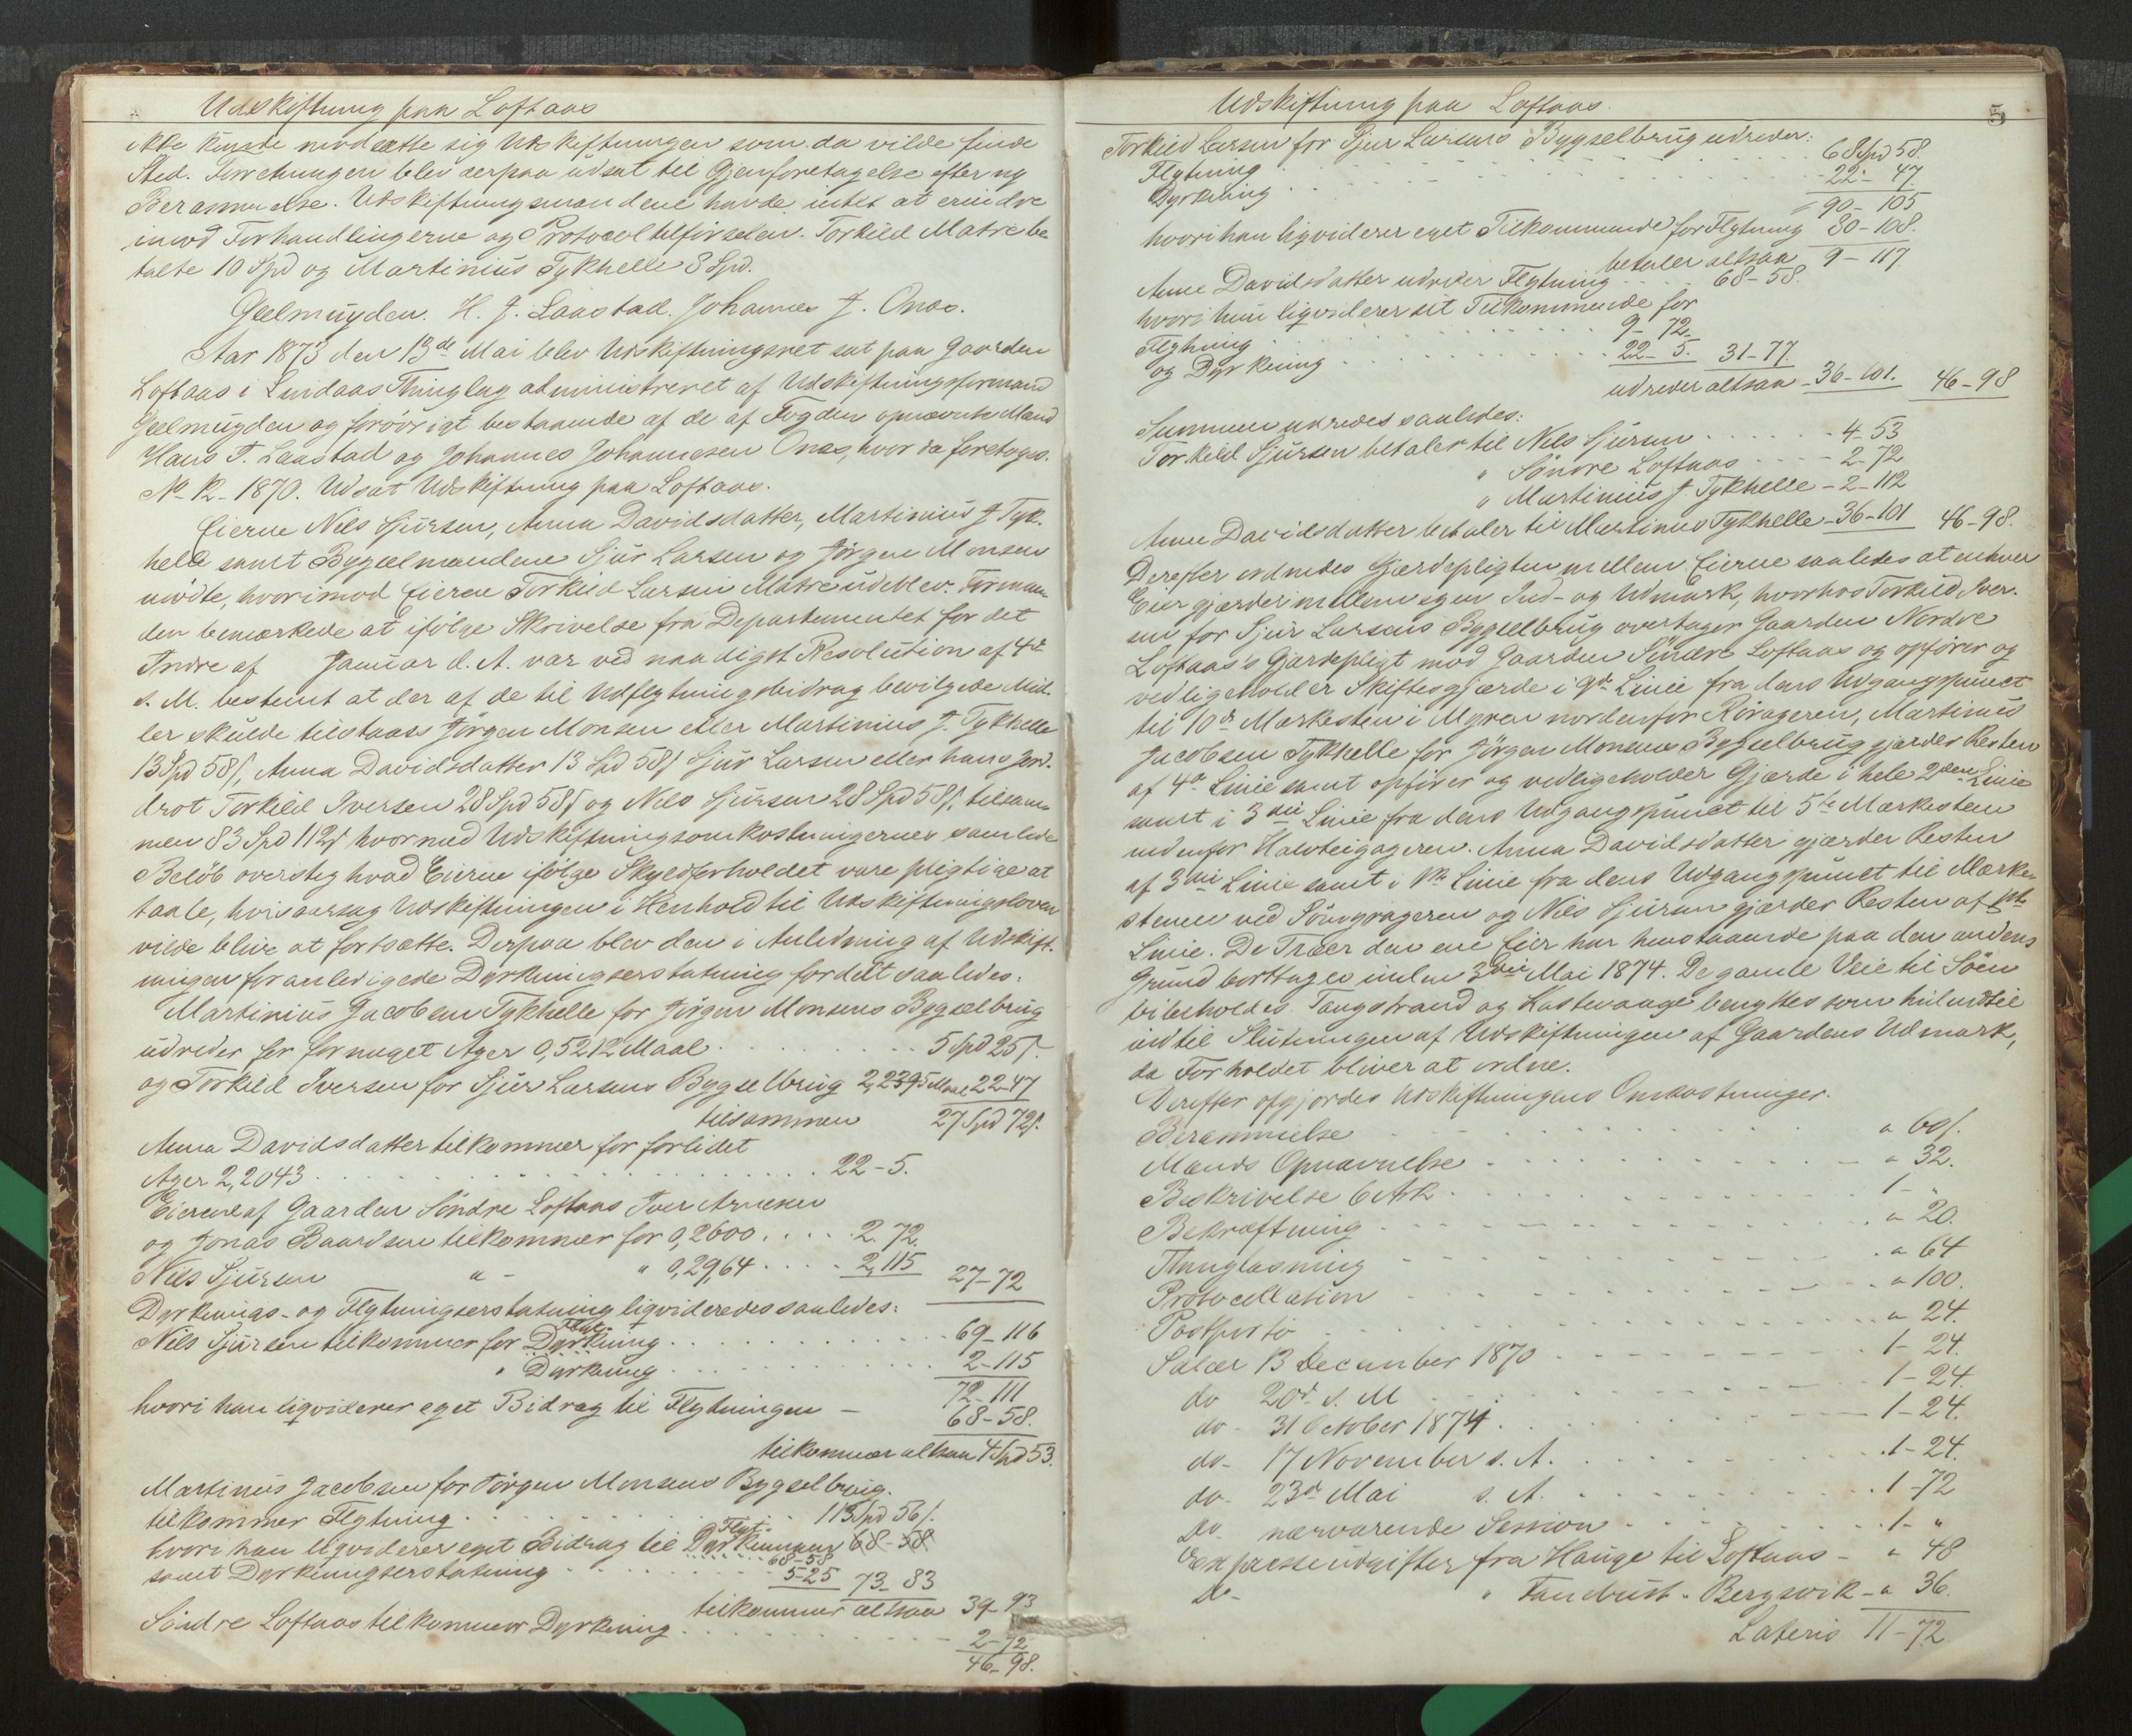 Udskiftning paa Loftaas
ikke kunde modsætte sig Udskiftningen som da vilde finde
Sted. Forretningen blev derpaa udsat til Gjenforetagelse efter ny
Berammelse. Udskiftningsmændene havde intet at erindre
imod Forhandlingerne og Protocoltilførselen. Torkild Matre be
talte 10 Spd og Martinius Tykhelle 8 Spd.
Geelmuyden. H. J. Laastad. Johannes J. Onæs.
Aar 1873 den 13de Mai blev Udskiftningsret sat paa Gaarden
Loftaas i Lindaas Thinglag administreret af Udskiftningsformand
Geelmuyden og forøvrigt bestaaende af de af Fogden opnævnte Mænd
Hans J. Laastad og Johannes Johannesen Onæs, hvor da foretoges.
No 12 - 1870. Udsat Udskiftning paa Loftaas.
Eierne Nils Sjursen, Anna Davidsdatter, Martinius J Tyk.
helle samt Bygselmændene Sjur Larsen og Jørgen Monsen
mødte, hvorimod Eieren Torkild Larsen Matre udeblev. Forman
den bemærkede at ifølge Skrivelse fra Departementet for det
Indre af Januar d. A. var ved naadigst Resolution af 4de
s. M. bestemt at der af de til Udflytningsbidrag bevilgede Mid-
ler skulde tilstaaes Jørgen Monsen eller Martinius J. Tykhelle
13 Spd 58 s, Anna Davidsdatter 13 Spd 58 s Sjur Larsen eller hans Jord.
drot Torkild Iversen 28 Spd 58 s og Nils Sjursen 28 Spd 58 s, tilsam
men 83 Spd 112 s hvormed Udskiftningsomkostningernes samlede
Beløb oversteg hvad Eierne ifølge Skyldforholdet vare pligtige at
taale, hvisaarsag Udskiftningen i Henhold til Udskiftningsloven
vilde blive at fortsætte. Derpaa blev den i Anledning af Udskift-
ningen foranledigede Dyrkningserstatning fordelt saaledes:
Martinius Jacobsen Tykhelle for Jørgen Monsens Bygselbrug
udreder for formeget Ager 0,5212 Maal 5 Spd 25 s.
og Torkild Iversen for Sjur Larsens Bygselbrug 2,2395 Maal 22-47
tilsammen 27 Spd 72 s.
Anna Davidsdatter tilkommer for forlidet
Ager 2,2043 22-5.
Eierne af Gaarden Søndre Loftaas Iver Arnesen
og Jonas Baardsen tilkommer for 0,2600 2. 72.
Nils Sjursen " " 0,2964 2, 115 27-72
Dyrknings- og Flytningserstatning liqvideredes saaledes:
Nils Sjursen tilkommer for Dyrkning Flyt- 69-116
" Dyrkning 2-115
72-111
hvori han liqviderer eget Bidrag til Flytningen - 68-58.
tilkommer altsaa 4 Spd 53.
Martinius Jacobsen for Jørgen Monsens Bygselbrug.
tilkommer Flytning 113 Spd 56 s.
hvori han liqviderer eget Bidrag til Dyrkningen Flyt- 68-58
68-58
samt Dyrkningserstatning 5-25 73-83
tilkommer altsaa 39-93
Søndre Loftaas tilkommer Dyrkning 2-72
46-98.
Udskiftning paa Loftaas.
5
Torkild Larsen for Sjur Larsens Bygselbrug udreder:
Flytning 68 Spd 58.
Dyrkning 22- 47
90-105
hvori han liqviderer eget Tilkommende for Flytning 80-108.
betaler altsaa 9-117.
Anne Davidsdatter udreder Flytning 68-58.
hvori hun liqviderer sit Tilkommende for
Flytning 9-72.
og Dyrkning 22-5. 31-77.
udreder altsaa 36-101. 46-98
Summen udredes saaledes:
Torkild Sjursen betaler til Nils Sjursen 4-53
" Søndre Loftaas 2-72
" Martinius J. Tykhelle - 2-112
Anne Davidsdatter betaler til Martinius Tykhelle - 36-101 46-98.
Derefter ordnedes Gjærdepligten mellem Eierne saaledes at enhver
Eier gjærder mellem egen Ind- og Udmark, hvorhos Torkild Iver-
sen for Sjur Larsens Bygselbrug overtager Gaarden Nordre
Loftaas's Gjærdepligt mod Gaarden Søndre Loftaas og opfører og
vedligeholder Skiftesgjærde i 9de Linie fra dens Udgangspunct
til 10de Mærkesten i Myren nordenfor Rørageren, Martinius
Jacobsen Tykhelle for Jørgen Monsens Bygselbrug gjærder Resten
af 4de Linie samt opfører og vedligeholder Gjærde i hele 2den Linie
samt i 3die Linie fra dens Udgangspunct til 5te Mærkesten
nedenfor Halvteigageren. Anna Davidsdatter gjærder Resten
af 3die Linie samt i 1ste Linie fra dens Udgangspunct til Mærke
stenen ved og Nils Sjursen gjærder Resten af 1ste
Linie. De Træer den ene Eier har henstaaende paa den andens
Grund borttages inden 3die Mai 1874. De gamle Veie til Søen
bibeholdes. Tangstrand og Lastevaage benyttes som hidindtil
indtil Slutningen af Udskiftningen af Gaardens Udmark,
da Forholdet bliver at ordne.
Derefter opgjordes Udskiftningens Omkostninger.
Berammelse " 60 s.
Mænds Opnævnelse - " 32.
Beskrivelse 6 Ark 1- "
Bekræftning " 20.
Thinglæsning " 64
Protocollation " 100.
Postporto " 24.
Salær 13 December 1870 1- 24.
do 20de s. M 1-24
do - 31 October 1874 1-24.
do- 17 November s. A. 1- 24.
do- 23de Mai s. A. 1-72
Do nærværende Session 1- "
Expresseudgifter fra Hauge til Loftaas - " 48
Do- " - Bergsvik - " 36.
Lateris 11-72